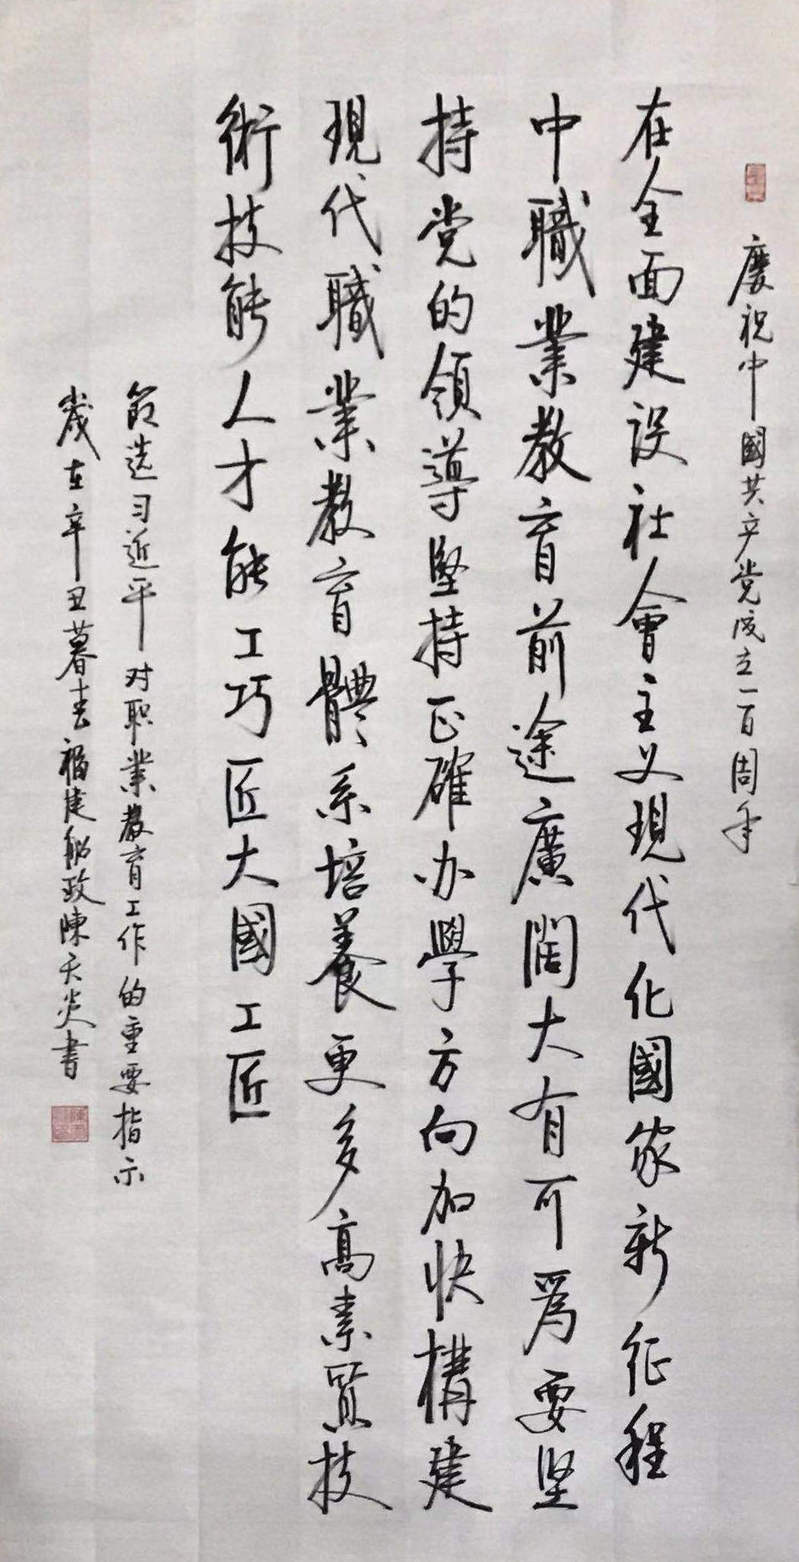 慶祝中國共产党成立一百周年
在全面建设社會主义現代化國家新征程
中職業教育前途廣闊大有可為要坚
持党的領導堅持正確办學方向加快構建
現代職業教育體系培養更多高素质技
術技能人才能工巧匠大國工匠
節选习近平对职業教育工作的重要指示
歲在辛丑暮春福建船政陳天炎書